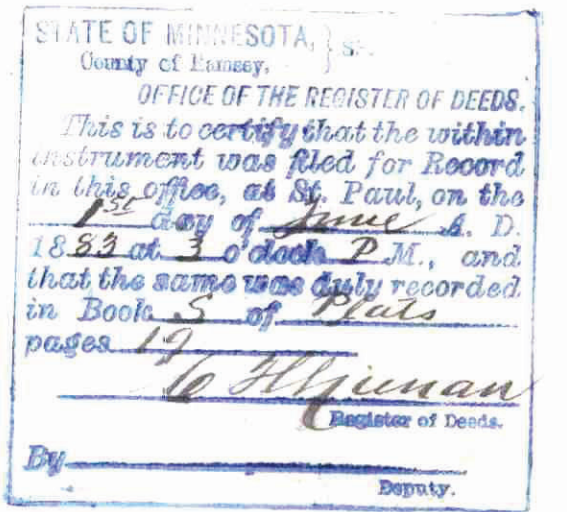 STATE OF MINNESOTA, } SS.
County of Ramsey,
OFFICE OF THE REGISTER OF DEEDS.
This is to certify that the within
instrument was filed for Record
in this office, at St. Paul, on the
1st day of June A. D.
1883 at 3 o'clock P M., and
that the same was duly recorded
in Book S of Plats
pages 19
Register of Deeds.
By
Deputy.